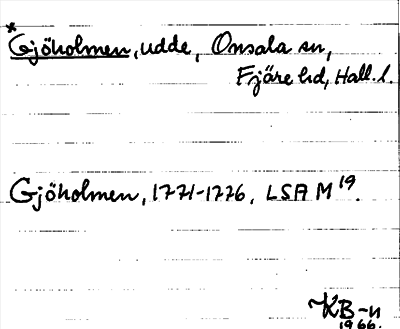 *Gjöholmen, udde, Onsala sn,
Fjäre hd, Hall. l.
Gjöholmen, 1771-1776, LSA M 19.
KB-n
1966.